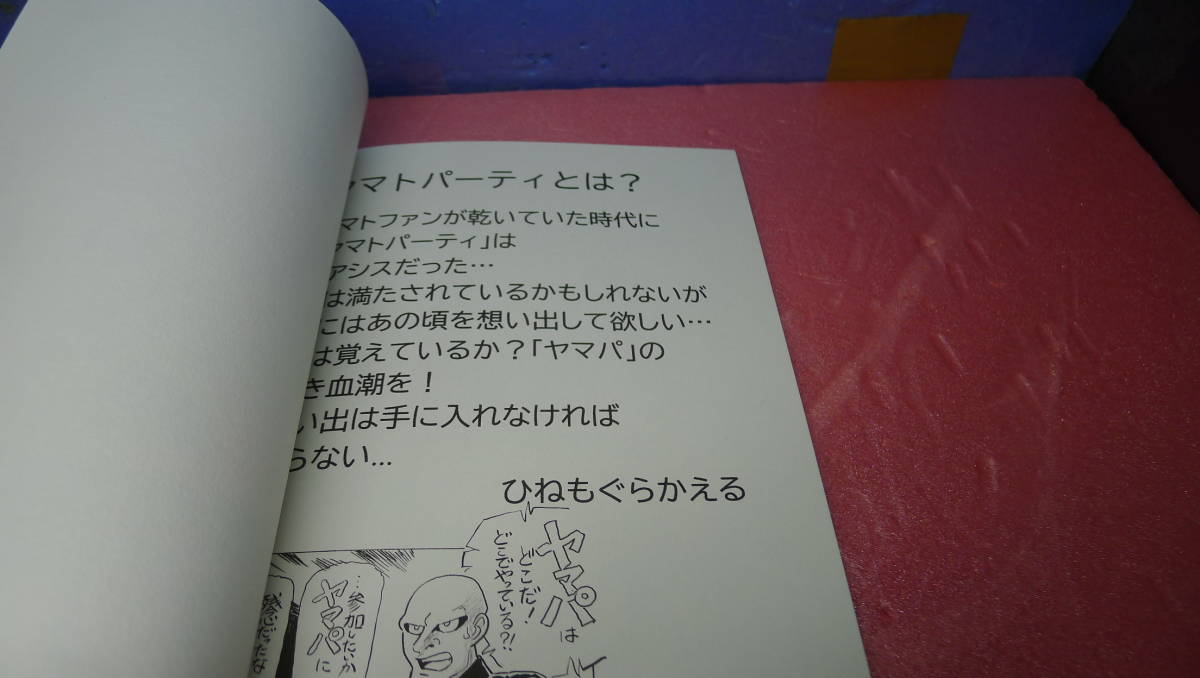 マトパーティとは？
マトファンが乾いていた時代に
マトパーティ」は
アシスだった…
は満たされているかもしれないが
にはあの頃を想い出して欲しい…
は覚えているか？「ヤマパ」の
き血潮を！
い出は手に入れなければ
らない…
ひねもぐらかえる
ヤマパは
どこだ！
どこでやっている?!
…参加したいか
ヤマパに
残念だったな